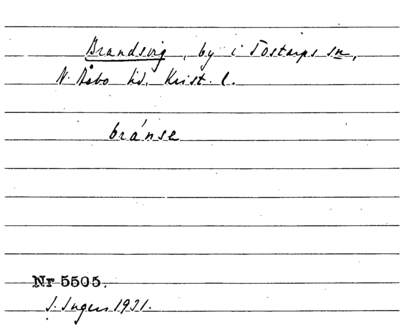 Brandsvig, by i Tostarps sn,
N. Åsbo hd. Krist. l.
bránse
Nr 5505.
I. Ingers 1931.